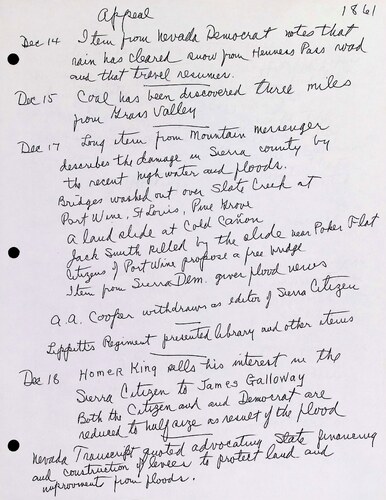 Appeal 1861
Dec 14 Item from Nevada Democrat notes that
rain has cleared snow from Henness Pass road
and that travel resumes.
Dec 15 Coal has been discovered three miles
from Grass Valley
Dec 17 Long item from Mountain Messenger
describes the damage in Sierra county by
the recent high water and floods.
Bridges washed out over Slate Creek at
Port Wine, St Louis, Pine Grove
A land slide at Cold Cañon
Jack Smith killed by the slide near Poker Flat
Citizens of Port Wine propose a free bridge
Item from Sierra Dem. gives flood news
A.A. Cooper withdraws as editor of Sierra Citizen
Lippitts Regiment presented library and other items
Dec 18 Homer King sells his interest in the
Sierra Citizen to James Galloway
Both the Citizen and and Democrat are
reduced to half size as result of the flood
Nevada Transcript quoted advocating State financing
and construction of levees to protect land and
improvement from floods.